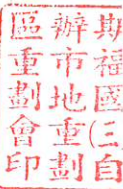 期福國(三)自
辦市地重劃
區重劃會印